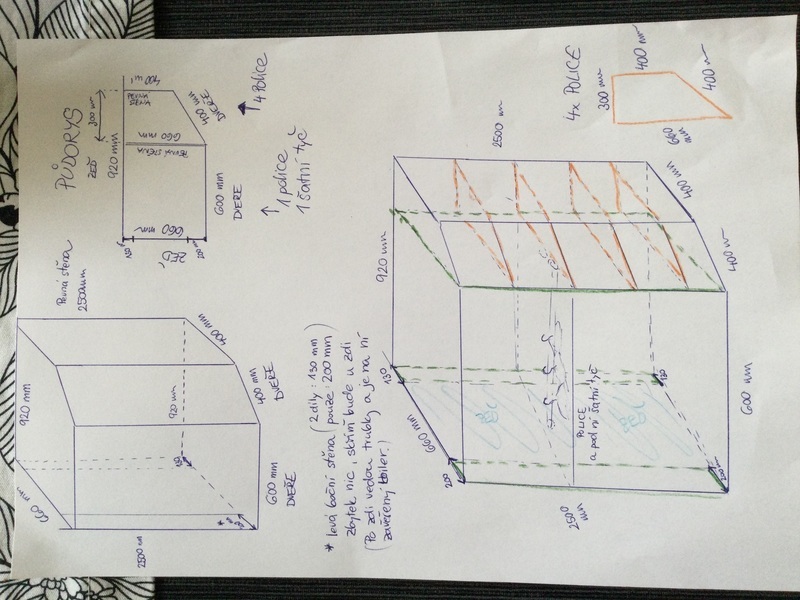 PŮDORYS
ZEĎ
920 mm
300 mm
400 mm
PEVNÁ STĚNA
400 mm
DVEŘE
660 mm
PEVNÁ STĚNA
660 mm
ZEĎ
130
200 mm
600 mm
DVEŘE
1 police
1 šatní tyč
4 police
Pevná stěna
2500mm
920 mm
660 mm
920 mm
400 mm
400 mm
DVEŘE
600 mm
DVEŘE
2500 mm
* levá boční stěna (2 díly: 130 mm
pouze: 200 mm)
zbytek nic, skříň bude u zdi
(Po zdi vedou trubky a je na ní
zavěšený boiler.)
4x POLICE
300 mm
400 mm
400 m
660 mm
2500 m
920 mm
130
660 mm
200
130
200 mm
POLICE
a pod ní šatní tyč
ZEĎ
ZEĎ
400 mm
400 m
600 mm
2500 mm